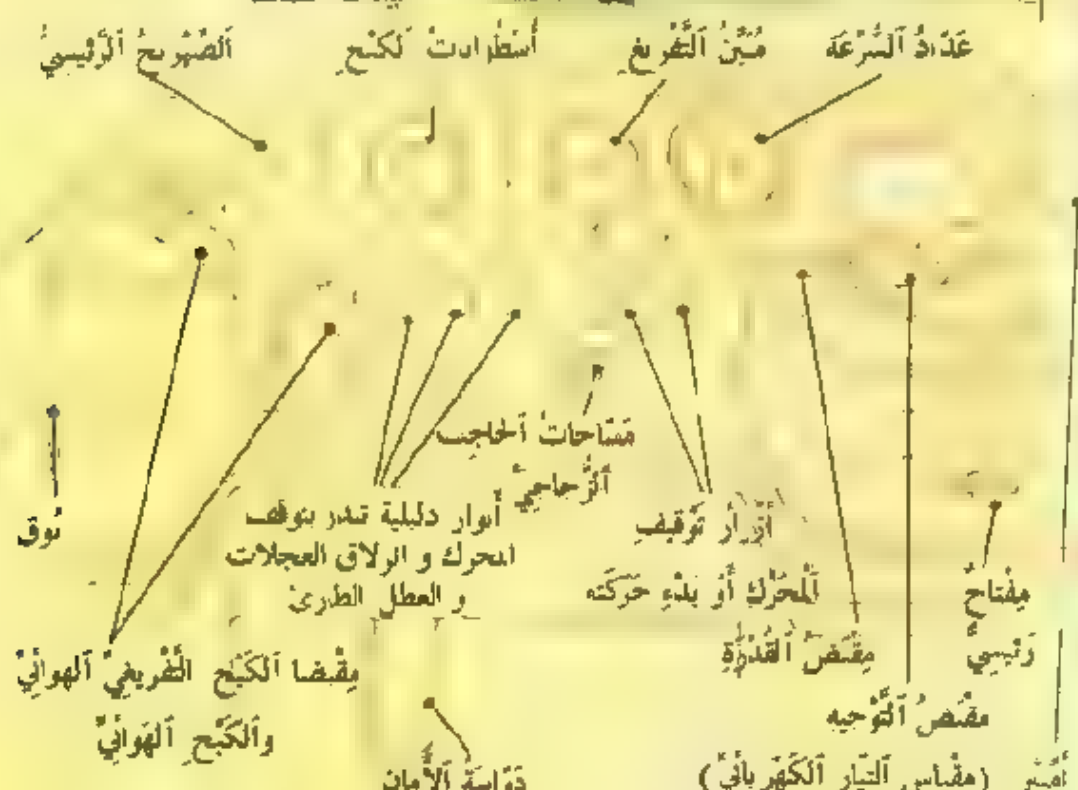 عَدَّادُ ٱلسُّرْعَة
مُبَيِّنُ ٱلتَّفْرِيغِ
أُسْطُوَانَاتُ ٱلْكَبْحِ
ٱلصِّهْرِيجُ ٱلرَّئِيسِيُّ
مَسَّاحَاتُ ٱلحَاجِبِ
ٱلزُّجَاجِيِّ
بُوق
أنوار دليلية تنذر بتوقف
المحرك و انزلاق العجلات
و العطل الطارئ
أَزْرَارُ تَوْقِيفِ
ٱلْمُحَرِّكِ أَوْ بَدْءِ حَرَكَتِه
مِفْتَاحٌ
رَئِيسِيٌّ
مِقْبَضُ ٱلْقُدْرَةِ
مِقْبَضَا ٱلكَبْحِ ٱلتَّفْرِيغِيِّ ٱلهوائِيِّ
وَٱلْكَبْحِ ٱلهَوائِيِّ
مِقْبَضُ ٱلتَّوْجيه
دَوَّاسَةُ ٱلأَمان
(مِقْياس ٱلتيّار ٱلكَهْرَبائيّ)